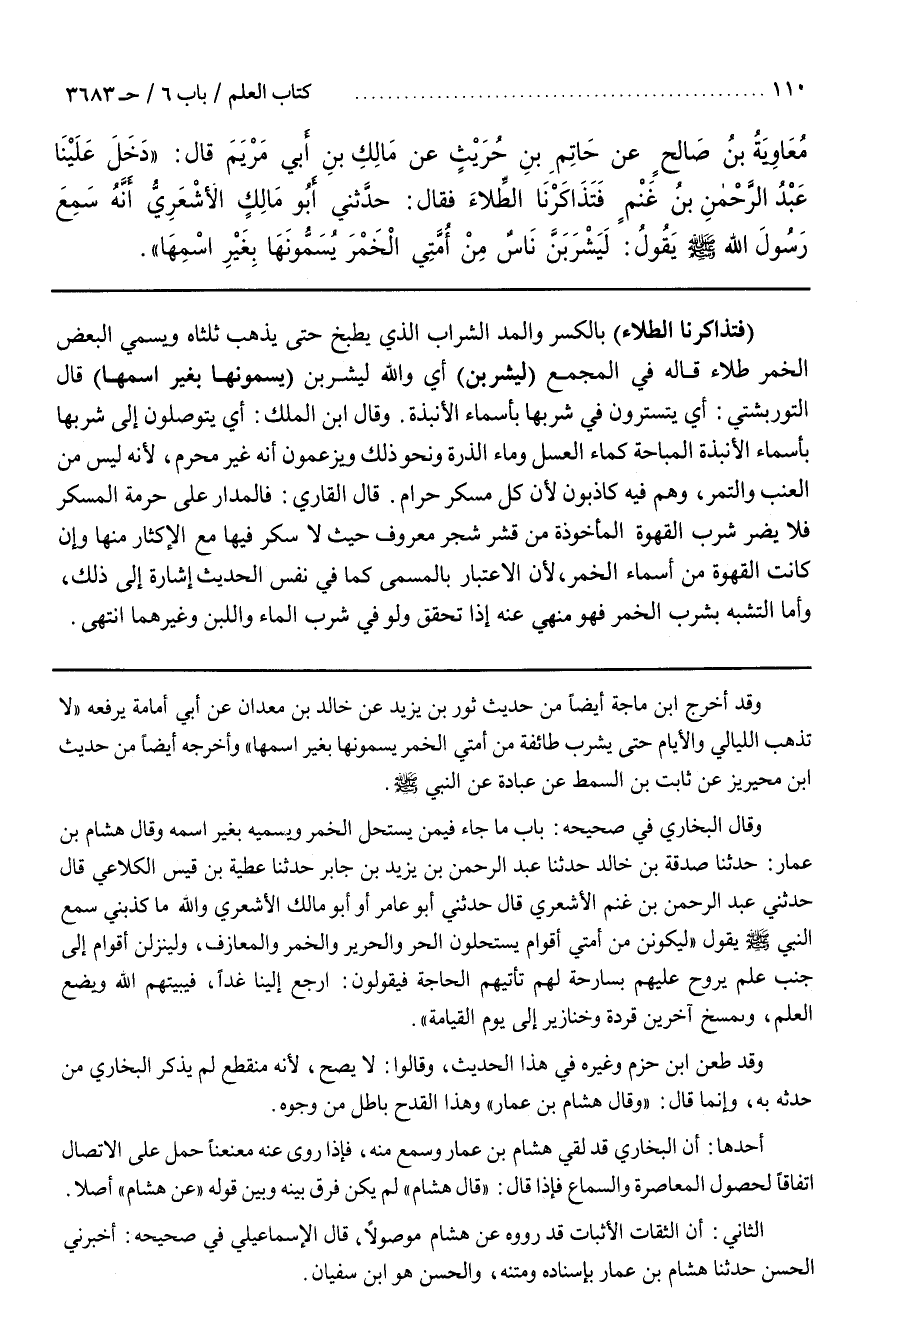 ١١٠ ................................................ كتاب العلم / باب ٦ / حـ ٣٦٨٣
مُعَاوِيَةُ بنُ صَالحٍ عن حَاتِمِ بنِ حُرَيْثٍ عن مَالِكِ بنِ أَبي مَرْيَمَ قال: «دَخَلَ عَلَيْنَا
عَبْدُ الرَّحْمٰنِ بنُ غَنْمٍ فَتَذَاكَرْنَا الطِّلاءَ فقال: حدَّثني أَبُو مَالِكٍ الأشْعَرِيُّ أَنَّهُ سَمِعَ
رَسُولَ الله ﷺ يَقُولُ: لَيَشْرَبَنَّ نَاسٌ مِنْ أُمَّتِي الْخَمْرَ يُسَمُّونَهَا بِغَيْرِ اسْمِهَا».
(فتذاكرنا الطلاء) بالكسر والمد الشراب الذي يطبخ حتى يذهب ثلثاه ويسمي البعض
الخمر طلاء قاله في المجمع (ليشربن) أي والله ليشربن (يسمونها بغير اسمها) قال
التوربشتي: أي يتسترون في شربها بأسماء الأنبذة. وقال ابن الملك: أي يتوصلون إلى شربها
بأسماء الأنبذة المباحة كماء العسل وماء الذرة ونحو ذلك ويزعمون أنه غير محرم، لأنه ليس من
العنب والتمر، وهم فيه كاذبون لأن كل مسكر حرام. قال القاري: فالمدار على حرمة المسكر
فلا يضر شرب القهوة المأخوذة من قشر شجر معروف حيث لا سكر فيها مع الإكثار منها وإن
كانت القهوة من أسماء الخمر، لأن الاعتبار بالمسمى كما في نفس الحديث إشارة إلى ذلك،
وأما التشبه بشرب الخمر فهو منهي عنه إذا تحقق ولو في شرب الماء واللبن وغيرهما انتهى.
وقد أخرج ابن ماجة أيضاً من حديث ثور بن يزيد عن خالد بن معدان عن أبي أمامة يرفعه «لا
تذهب الليالي والأيام حتى يشرب طائفة من أمتي الخمر يسمونها بغير اسمها» وأخرجه أيضاً من حديث
ابن محيريز عن ثابت بن السمط عن عبادة عن النبي ﷺ.
وقال البخاري في صحيحه: باب ما جاء فيمن يستحل الخمر ويسميه بغير اسمه وقال هشام بن
عمار: حدثنا صدقة بن خالد حدثنا عبد الرحمن بن يزيد بن جابر حدثنا عطية بن قيس الكلاعي قال
حدثني عبد الرحمن بن غنم الأشعري قال حدثني أبو عامر أو أبو مالك الأشعري والله ما كذبني سمع
النبي ﷺ يقول «ليكونن من أمتي أقوام يستحلون الحر والحرير والخمر والمعازف، ولينزلن أقوام إلى
جنب علم يروح عليهم بسارحة لهم تأتيهم الحاجة فيقولون: ارجع إلينا غداً، فيبيتهم الله ويضع
العلم، وىمسخ آخرين قردة وخنازير إلى يوم القيامة».
وقد طعن ابن حزم وغيره في هذا الحديث، وقالوا: لا يصح، لأنه منقطع لم يذكر البخاري من
حدثه به، وإنما قال: «وقال هشام بن عمار» وهذا القدح باطل من وجوه.
أحدها: أن البخاري قد لقي هشام بن عمار وسمع منه، فإذا روى عنه معنعناً حمل على الاتصال
اتفاقاً لحصول المعاصرة والسماع فإذا قال: «قال هشام» لم يكن فرق بينه وبين قوله «عن هشام» أصلا.
الثاني: أن الثقات الأثبات قد رووه عن هشام موصولاً، قال الإسماعيلي في صحيحه: أخبرني
الحسن حدثنا هشام بن عمار بإسناده ومتنه، والحسن هو ابن سفيان.